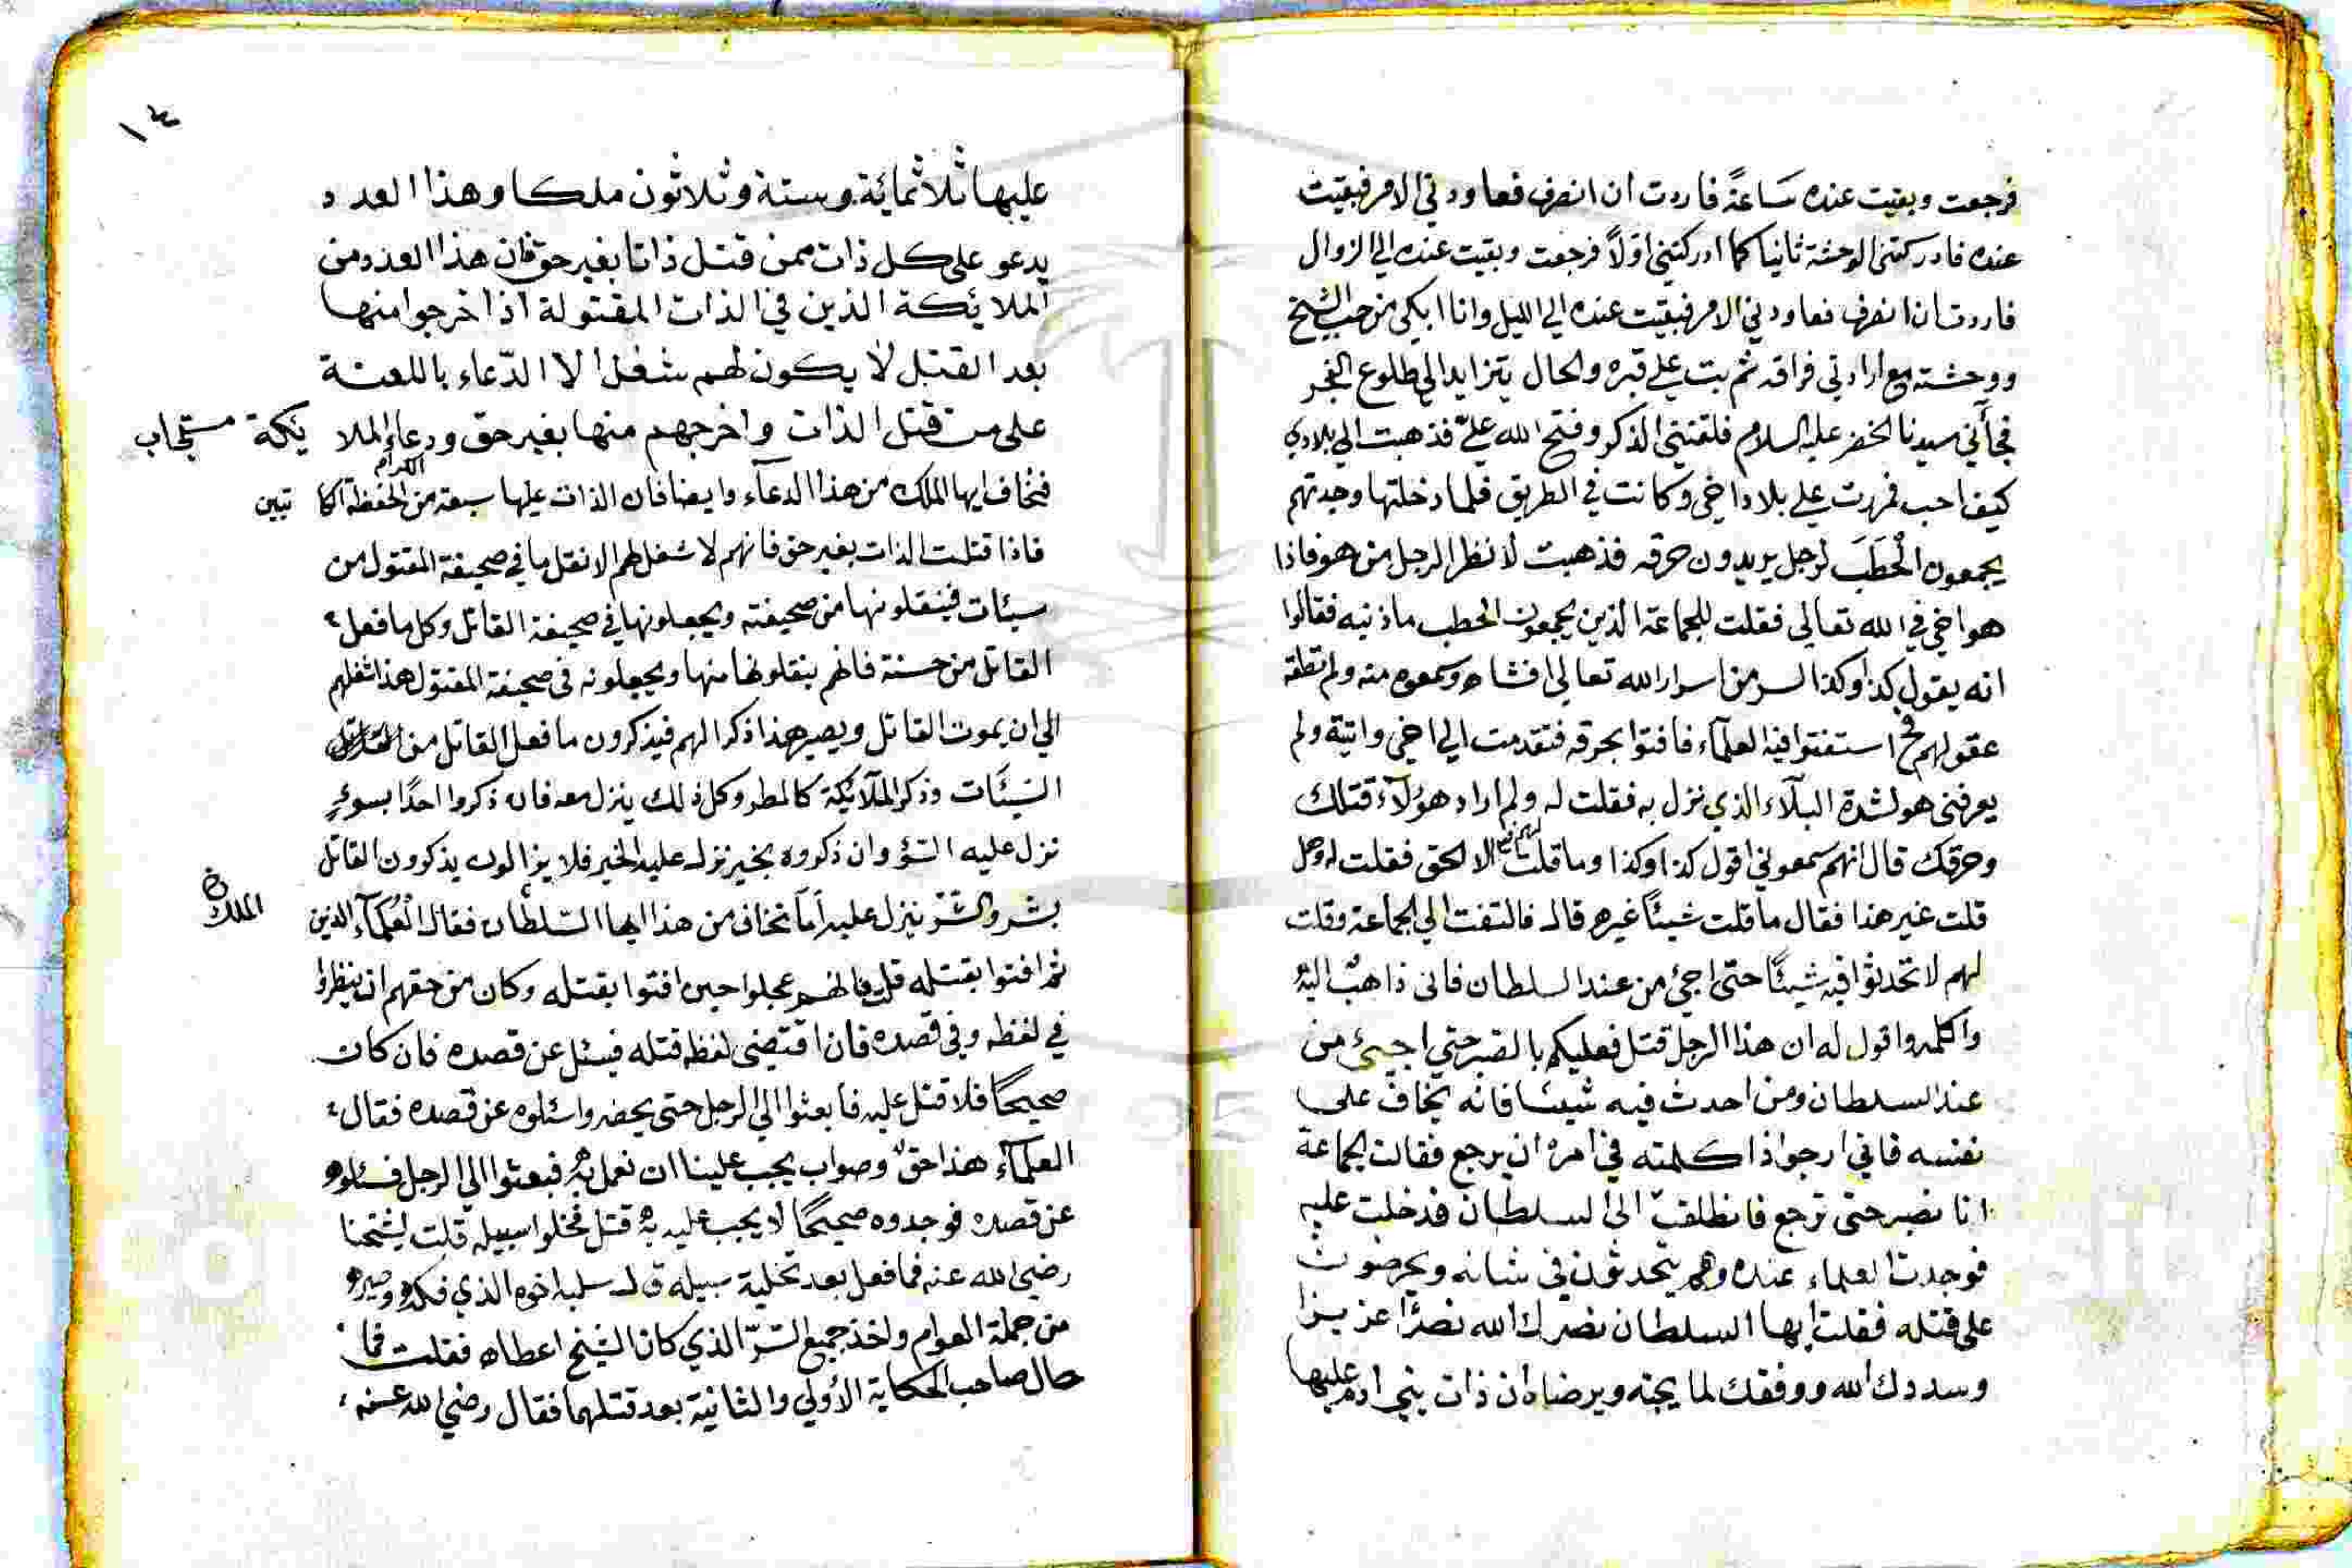 فرجعت وبقيت عنده سَاعةً فاردت ان انصرف فعاودني الامر فبقيت
عنده فادركتني الوحشة ثانيا كما ادركتني اوّلاً فرجعت وبقيت عنده الي الزوال
فاردت ان انصرف فعاودني الامر فبقيت عنده الي الليل وانا ابكي من حب الشيخ
ووحشته مع ارادتي فراقه ثم بت علي قبره والحال يتزايد الي طلوع الفجر
فجآءني سيدنا الخضر عليه السلام فلقنني الذكر وفتح الله عليّ فذهبت الي بلادي
كيف احب فمررت علي بلاد اخي وكانت في الطريق فلما دخلتها وجدتهم
يجمعون الْحَطَبَ لرجل يريدون حرقه فذهبت لانظر الرجل من هو فاذا
هو اخي في الله تعالي فقلت للجماعة الذين يجمعون الحطب ما ذنبه فقالوا
انه يقول كذا وكذا لسر من اسرار الله تعالي افشاه وسمعوه منه ولم تطقه
عقولهم فح استفتوا فيه العلمآء فافتوا بحرقه فتقدمت الي اخي واتيته ولم
يعرفني هو لشدة البلآء الذي نزل به فقلت له ولم اراد هؤلآء قتلك
وحرقك قال انهم سمعوني اقول كذا وكذا وما قلت الا الحق فقلت له وهل
قلت غير هذا فقال ما قلت شيئاً غيره قال فالتفت الي الجماعة وقلت
لهم لا تحدثوا فيه شيئًا حتى اجئ من عند السلطان فاني ذاهب اليه
واكلمه واقول له ان هذا الرجل قتل فعليكم بالصبر حتي اجيئ من
عند السلطان ومن احدث فيه شيئا فانه يخاف على
نفسه فاني ارجو اذا كلمته في امره ان يرجع فقالت الجماعة
انا نصبر حتى ترجع فانطلقت الى السلطان فدخلت عليه
فوجدت العلماء عنده وهم يتحدثون في شانه ويحرضون
على قتله فقلت ايها السلطان نصرك الله نصرًا عزيزا
وسددك الله ووفقك لما يحبه ويرضاه ان ذات بني ادم عليها
١٤
عليها ثلاثمائة وستة وثلاثون ملكا وهذا العدد
يدعو على كل ذات ممن قتل ذاتا بغير حق فان هذا العدد من
الملائكة الذين في الذات المقتولة اذا خرجوا منها
بعد القتل لا يكون لهم شغل الا الدّعاء باللعنة
على من قتل الذات واخرجهم منها بغير حق ودعاء الملائكة مستجاب
فتخاف ايها الملك من هذا الدعآء وايضا فان الذات عليها سبعة من الحفظة الكرام الكاتبين
فاذا قتلت الذات بغير حق فانهم لا شغل لهم الا نقل ما في صحيفة المقتول من
سيئات فينقلونها من صحيفته ويجعلونها في صحيفة القاتل وكل ما فعل
القاتل من حسنة فانهم ينقلونها منها ويجعلونه في صحيفة المقتول هذا شغلهم
الي ان يموت القاتل ويصير هذا ذكرا لهم فيذكرون ما فعل القاتل من
السّيئَات وذكر الملآئكة كالمطر وكل ذلك ينزل معه فان ذكروا احدًا بسوءٍ
نزل عليه السّؤ وان ذكروه بخير نزل عليه الخير فلا يزالون يذكرون القاتل
بشر والشّرّ ينزل عليه اَمَا تخاف من هذا ايها السّلطان فقال الملك العُلمآء الذين
ثم افتوا بقتله قلت فانهم عجلوا حين افتوا بقتله وكان من حقهم ان ينظروا
في لفظه وفي قصده فان اقتضى لفظه قتله فيسئل عن قصده فان كان
صحيحًا فلا قتل عليه فابعثوا الي الرجل حتى يحضر واسئلوه عن قصده فقال
العلمآء هذا حق وصواب يجب علينا ان نعمل به فبعثوا الي الرجل فسئلوه
عن قصده فوجدوه صحيحًا لا يجب عليه به قتل فخلوا سبيله قلت لشيخنا
رضي الله عنه فما فعل بعد تخلية سبيله قال سلبه اخوه الذي فكه وصيره
من جملة العوام واخذ جميع السّرّ الذي كان الشيخ اعطاه فقلت فما
حال صاحب الحكاية الأولي والثانية بعد قتلهما فقال رضي الله عنه